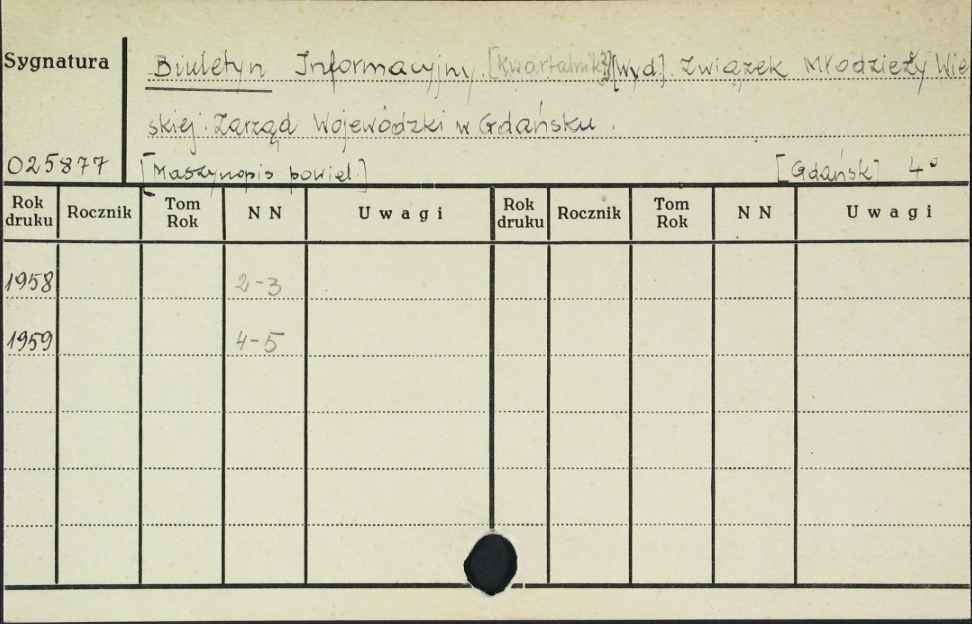 Sygnatura
Biuletyn Informacyjny. [Kwartalnik] [Wyd]. Związek Młodzieży Wie
skiej. Zarząd Wojewódzki w Gdańsku.
025877 [Maszynopis powiel.] [Gdańsk] 4°
Rok druku Rocznik Tom Rok NN Uwagi Rok druku Rocznik Tom Rok NN Uwagi
1958 2-3
1959 4-5